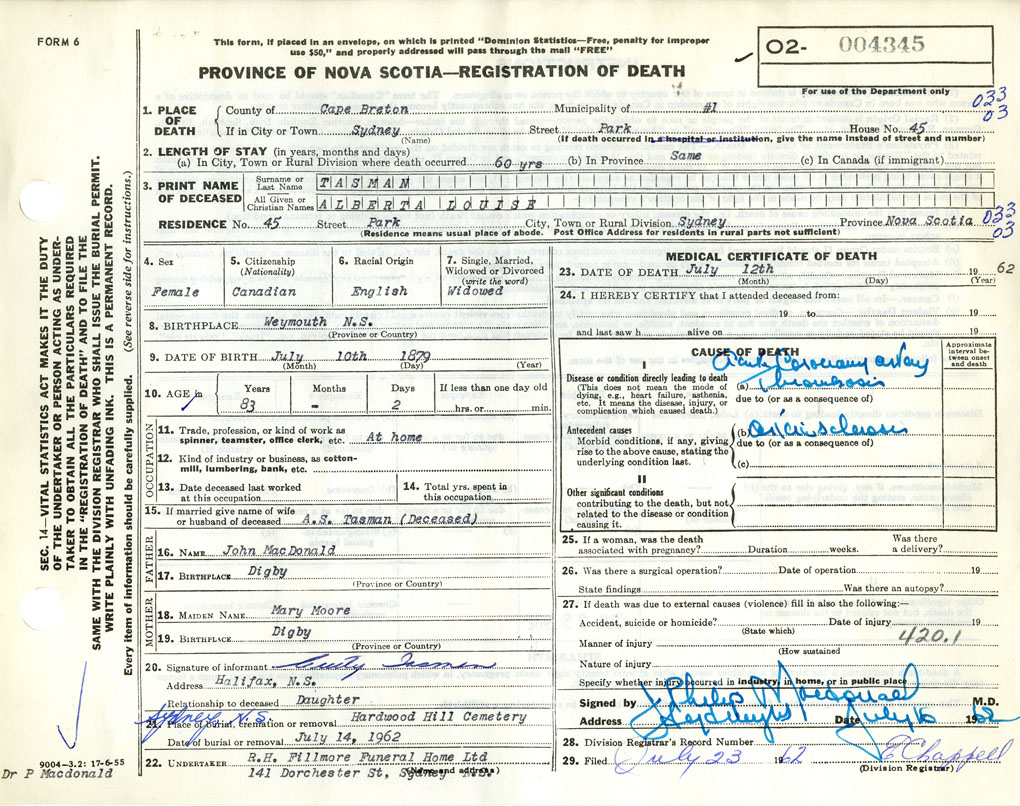 FORM 6
This form, if placed in an envelope, on which is printed "Dominion Statistics—Free, penalty for improper
use $50," and properly addressed will pass through the mail "FREE"
O2- 004345
PROVINCE OF NOVA SCOTIA—REGISTRATION OF DEATH
For use of the Department only
033
03
1. PLACE OF DEATH
County of Cape Breton Municipality of #1
If in City or Town Sydney Street Park House No. 45
(Name) (If death occurred in a hospital or institution, give the name instead of street and number)
2. LENGTH OF STAY (in years, months and days)
(a) In City, Town or Rural Division where death occurred 60 yrs (b) In Province Same (c) In Canada (if immigrant)
3. PRINT NAME OF DECEASED
Surname or Last Name TASMAN
All Given or Christian Names ALBERTA LOUISE
RESIDENCE No. 45 Street Park City, Town or Rural Division Sydney Province Nova Scotia
(Residence means usual place of abode. Post Office Address for residents in rural parts not sufficient)
033
03
4. Sex
Female
5. Citizenship
(Nationality)
Canadian
6. Racial Origin
English
7. Single, Married,
Widowed or Divorced
(write the word)
Widowed
8. BIRTHPLACE Weymouth N.S.
(Province or Country)
9. DATE OF BIRTH July 10th 1879
(Month) (Day) (Year)
10. AGE in
Years Months Days If less than one day old
83 - 2 hrs. or min.
OCCUPATION
11. Trade, profession, or kind of work as
spinner, teamster, office clerk, etc. At home
12. Kind of industry or business, as cotton-
mill, lumbering, bank, etc.
13. Date deceased last worked
at this occupation
14. Total yrs. spent in
this occupation
15. If married give name of wife
or husband of deceased A.S. Tasman (Deceased)
FATHER
16. NAME John MacDonald
17. BIRTHPLACE Digby
(Province or Country)
MOTHER
18. MAIDEN NAME Mary Moore
19. BIRTHPLACE Digby
(Province or Country)
20. Signature of informant Tasman
Address Halifax, N.S.
Relationship to deceased Daughter
Sydney N.S.
21. Place of burial, cremation or removal Hardwood Hill Cemetery
Date of burial or removal July 14, 1962
22. UNDERTAKER R.H. Fillmore Funeral Home Ltd
141 Dorchester St, Sydney N.S.
(Name and address)
MEDICAL CERTIFICATE OF DEATH
23. DATE OF DEATH July 12th 1962
(Month) (Day) (Year)
24. I HEREBY CERTIFY that I attended deceased from:
19 to 19
and last saw h alive on 19
CAUSE OF DEATH
Approximate
interval be-
tween onset
and death
I
Disease or condition directly leading to death
(This does not mean the mode of
dying, e.g., heart failure, asthenia,
etc. It means the disease, injury, or
complication which caused death.)
Acute Coronary artery
(a) Thrombosis
due to (or as a consequence of)
Antecedent causes
Morbid conditions, if any, giving
rise to the above cause, stating the
underlying condition last.
(b) Arteriosclerosis
due to (or as a consequence of)
(c)
II
Other significant conditions
contributing to the death, but not
related to the disease or condition
causing it.
25. If a woman, was the death
associated with pregnancy? Duration weeks. Was there
a delivery?
26. Was there a surgical operation? Date of operation 19
State findings Was there an autopsy?
27. If death was due to external causes (violence) fill in also the following:—
Accident, suicide or homicide? Date of injury 19
(State which)
420.1
Manner of injury
(How sustained
Nature of injury
Specify whether injury occurred in industry, in home, or in public place
Signed by J Philip Macdonald M.D.
Address Sydney NS Date July 16 1962
28. Division Registrar's Record Number
29. Filed July 23 1962 Chappell
(Division Registrar)
SEC. 14—VITAL STATISTICS ACT MAKES IT THE DUTY
OF THE UNDERTAKER OR PERSON ACTING AS UNDER-
TAKER TO OBTAIN ALL THE PARTICULARS REQUIRED
IN THE "REGISTRATION OF DEATH" AND TO FILE THE
SAME WITH THE DIVISION REGISTRAR WHO SHALL ISSUE THE BURIAL PERMIT.
WRITE PLAINLY WITH UNFADING INK. THIS IS A PERMANENT RECORD.
Every item of information should be carefully supplied. (See reverse side for instructions.)
9004-3.2: 17-6-55
Dr P Macdonald